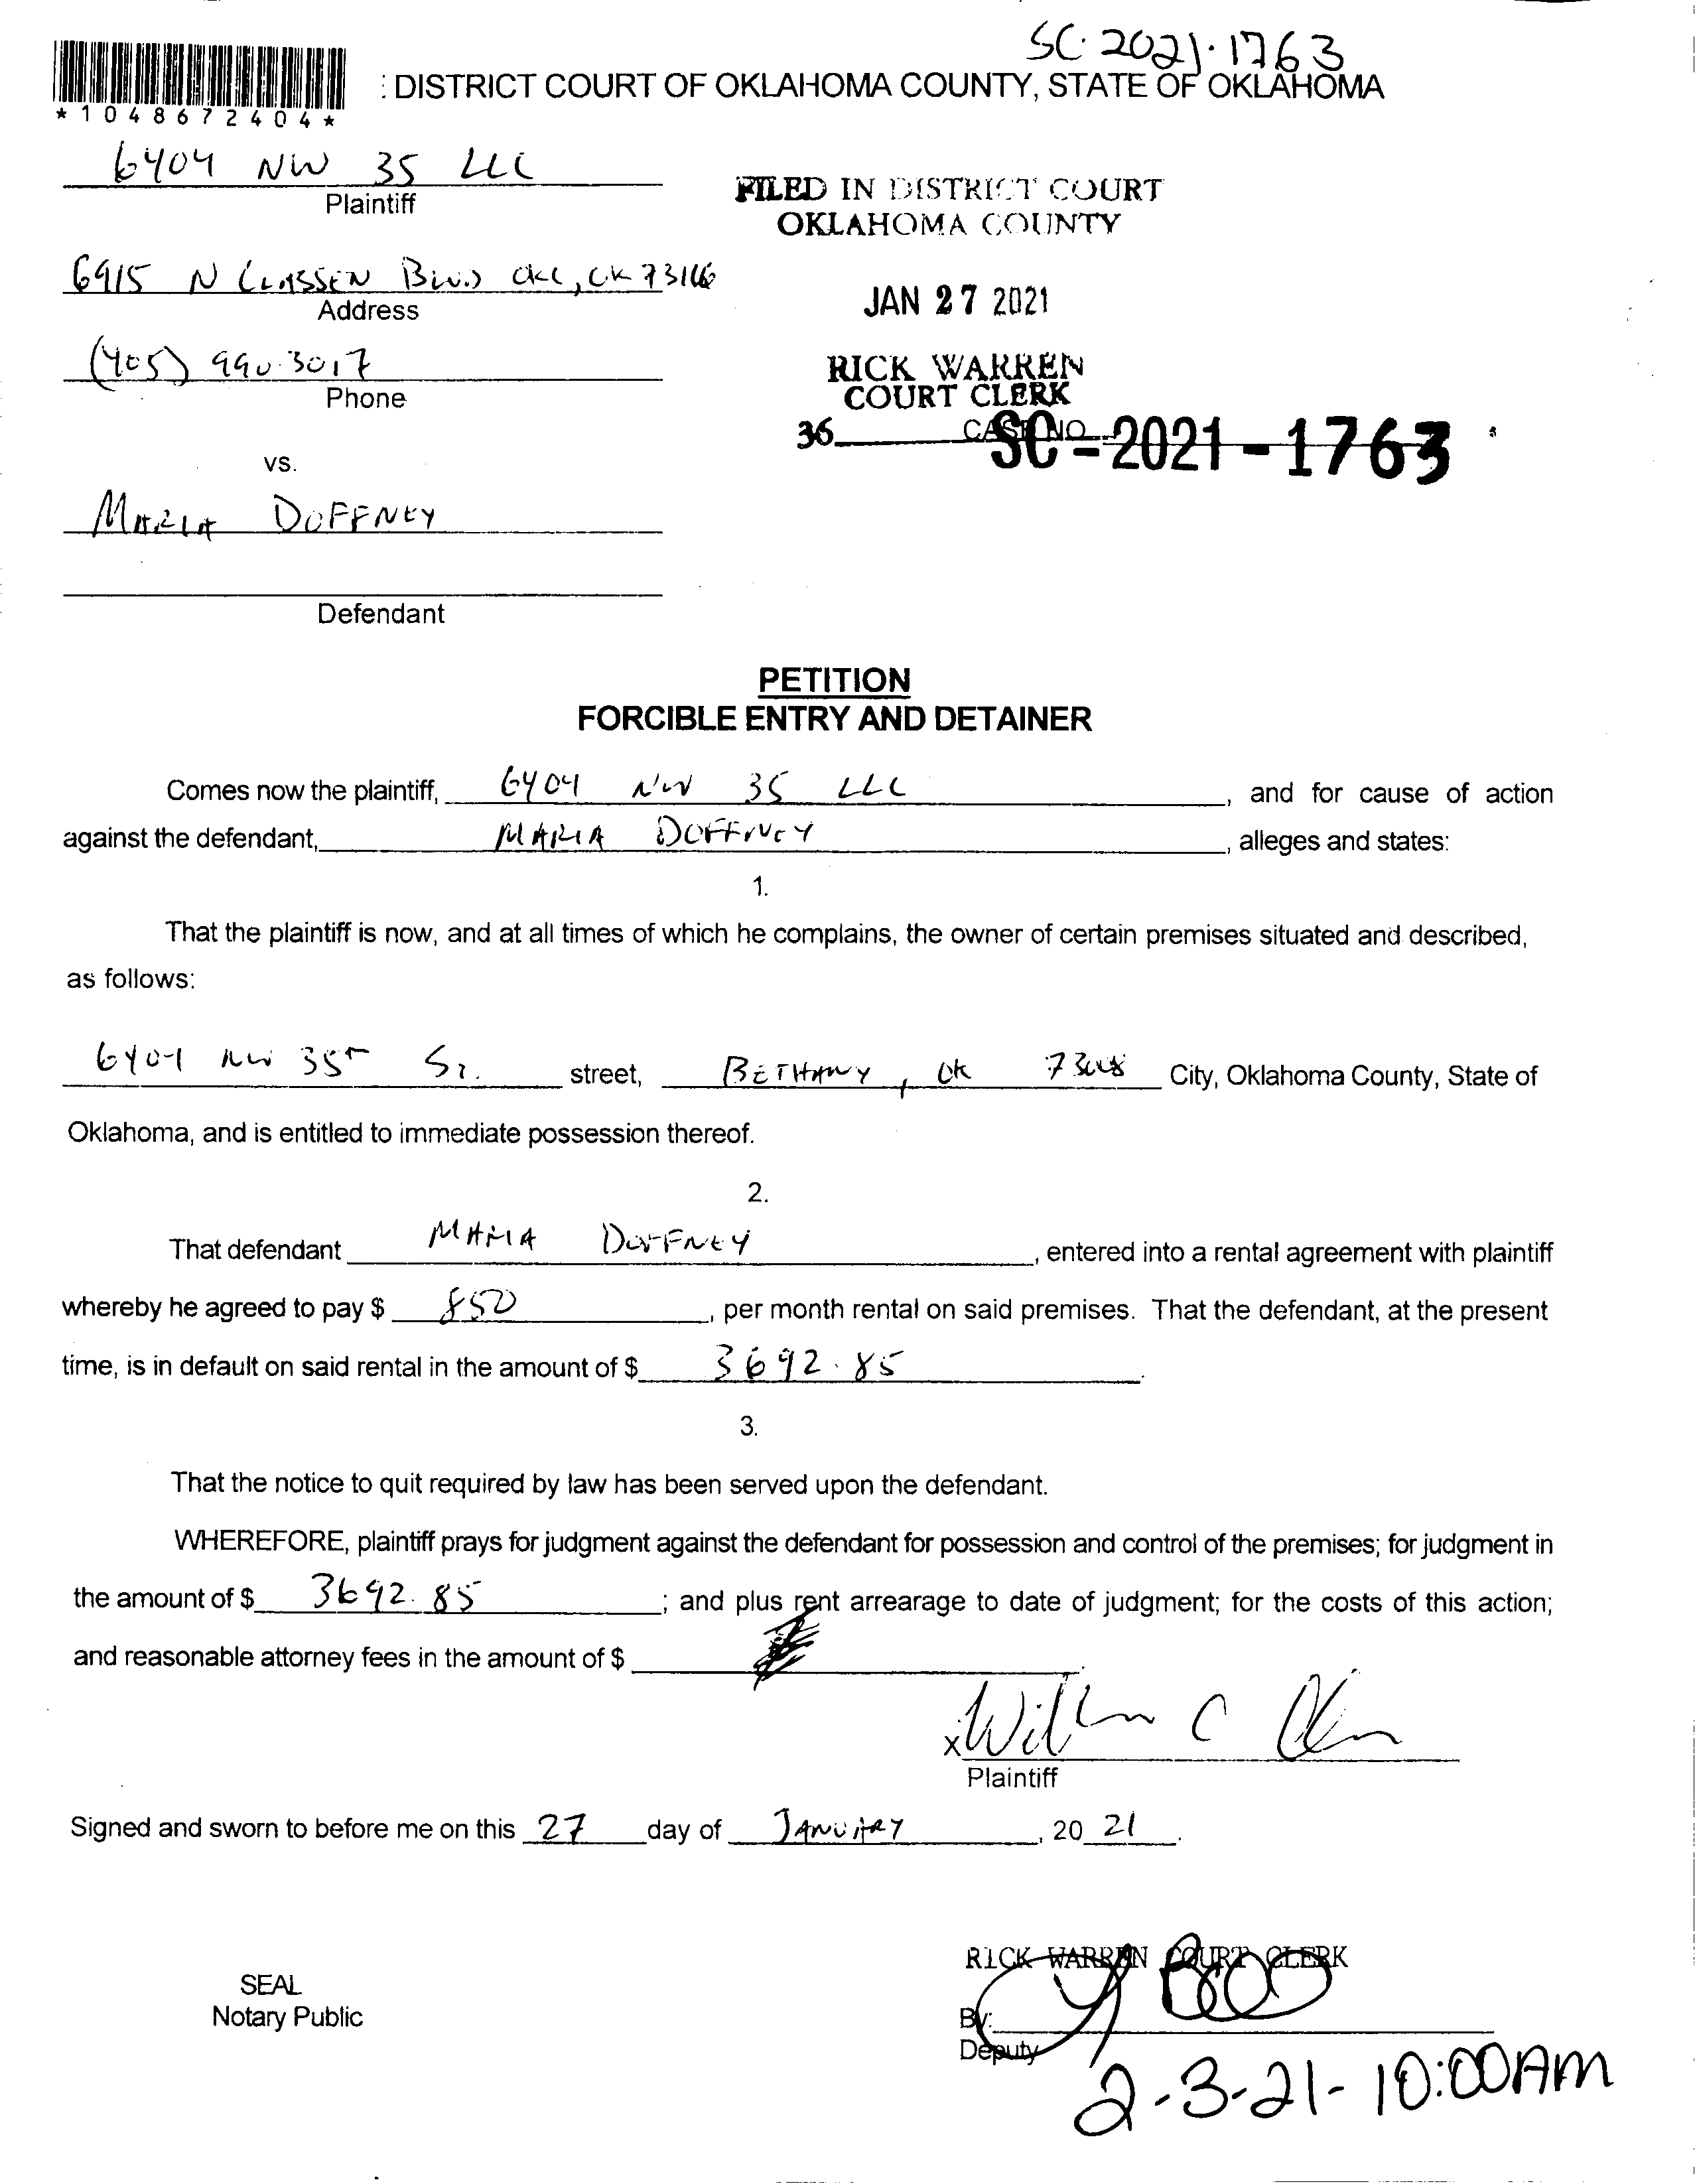 SC-2021-1763
: DISTRICT COURT OF OKLAHOMA COUNTY, STATE OF OKLAHOMA
*1048672404*
6404 NW 35 LLC
Plaintiff
FILED IN DISTRICT COURT
OKLAHOMA COUNTY
6915 N CLASSEN BLVD OKC, OK 73116
Address
JAN 27 2021
(405) 990-3017
Phone
RICK WARREN
COURT CLERK
36 CASE NO. SC-2021-1763
vs.
MARIA DOFFNEY
Defendant
PETITION
FORCIBLE ENTRY AND DETAINER
Comes now the plaintiff, 6404 NW 35 LLC, and for cause of action
against the defendant, MARIA DOFFNEY, alleges and states:
1.
That the plaintiff is now, and at all times of which he complains, the owner of certain premises situated and described,
as follows:
6404 NW 35TH ST. street, BETHANY, OK 73008 City, Oklahoma County, State of
Oklahoma, and is entitled to immediate possession thereof.
2.
That defendant MARIA DOFFNEY, entered into a rental agreement with plaintiff
whereby he agreed to pay $ 850, per month rental on said premises. That the defendant, at the present
time, is in default on said rental in the amount of $ 3692.85.
3.
That the notice to quit required by law has been served upon the defendant.
WHEREFORE, plaintiff prays for judgment against the defendant for possession and control of the premises; for judgment in
the amount of $ 3692.85; and plus rent arrearage to date of judgment; for the costs of this action;
and reasonable attorney fees in the amount of $
x
Plaintiff
Signed and sworn to before me on this 27 day of JANUARY, 20 21.
RICK WARREN COURT CLERK
SEAL
Notary Public
By:
Deputy
2-3-21- 10:00AM